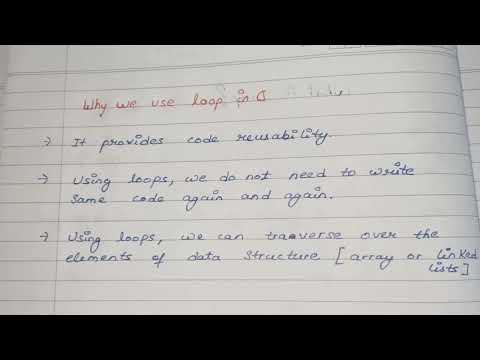 Why we use loop in C
→ It provides code reusability
→ Using loops, we do not need to write
same code again and again.
→ Using loops, we can traverse over the
elements of data structure [array or linked
lists]